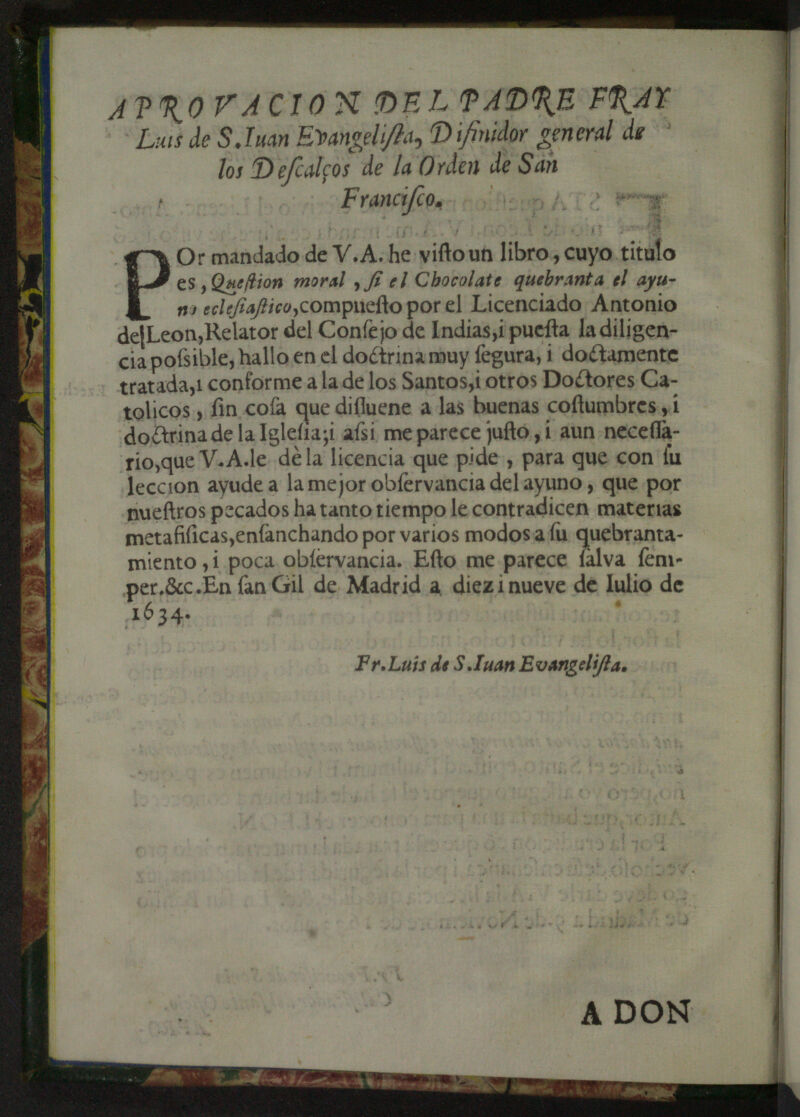 APROVACION DEL PADRE FRAY
Luis de S. Iuan Evangeliſta, Difinidor general de
los Deſcalços de la Orden de San
Franciſco.
POr mandado de V.A. he viſto un libro, cuyo titulo
es, Queſtion moral, ſi el Chocolate quebranta el ayu-
no ecleſiaſtico, compueſto por el Licenciado Antonio
de Leon, Relator del Conſejo de Indias, i pueſta la diligen-
cia poſsible, hallo en el doctrina muy ſegura, i doctamente
tratada, i conforme a la de los Santos, i otros Doctores Ca-
tolicos, ſin coſa que diſſuene a las buenas coſtumbres, i
doctrina de la Igleſia; i aſsi me parece juſto, i aun neceſſa-
rio, que V.A. le dè la licencia que pide, para que con ſu
leccion ayude a la mejor obſervancia del ayuno, que por
nueſtros pecados ha tanto tiempo le contradicen materias
metafiſicas, enſanchando por varios modos a ſu quebranta-
miento, i poca obſervancia. Eſto me parece ſalva ſem-
per. &c. En ſan Gil de Madrid a diez i nueve de Iulio de
1634.
Fr. Luis de S. Iuan Evangeliſta.
A DON